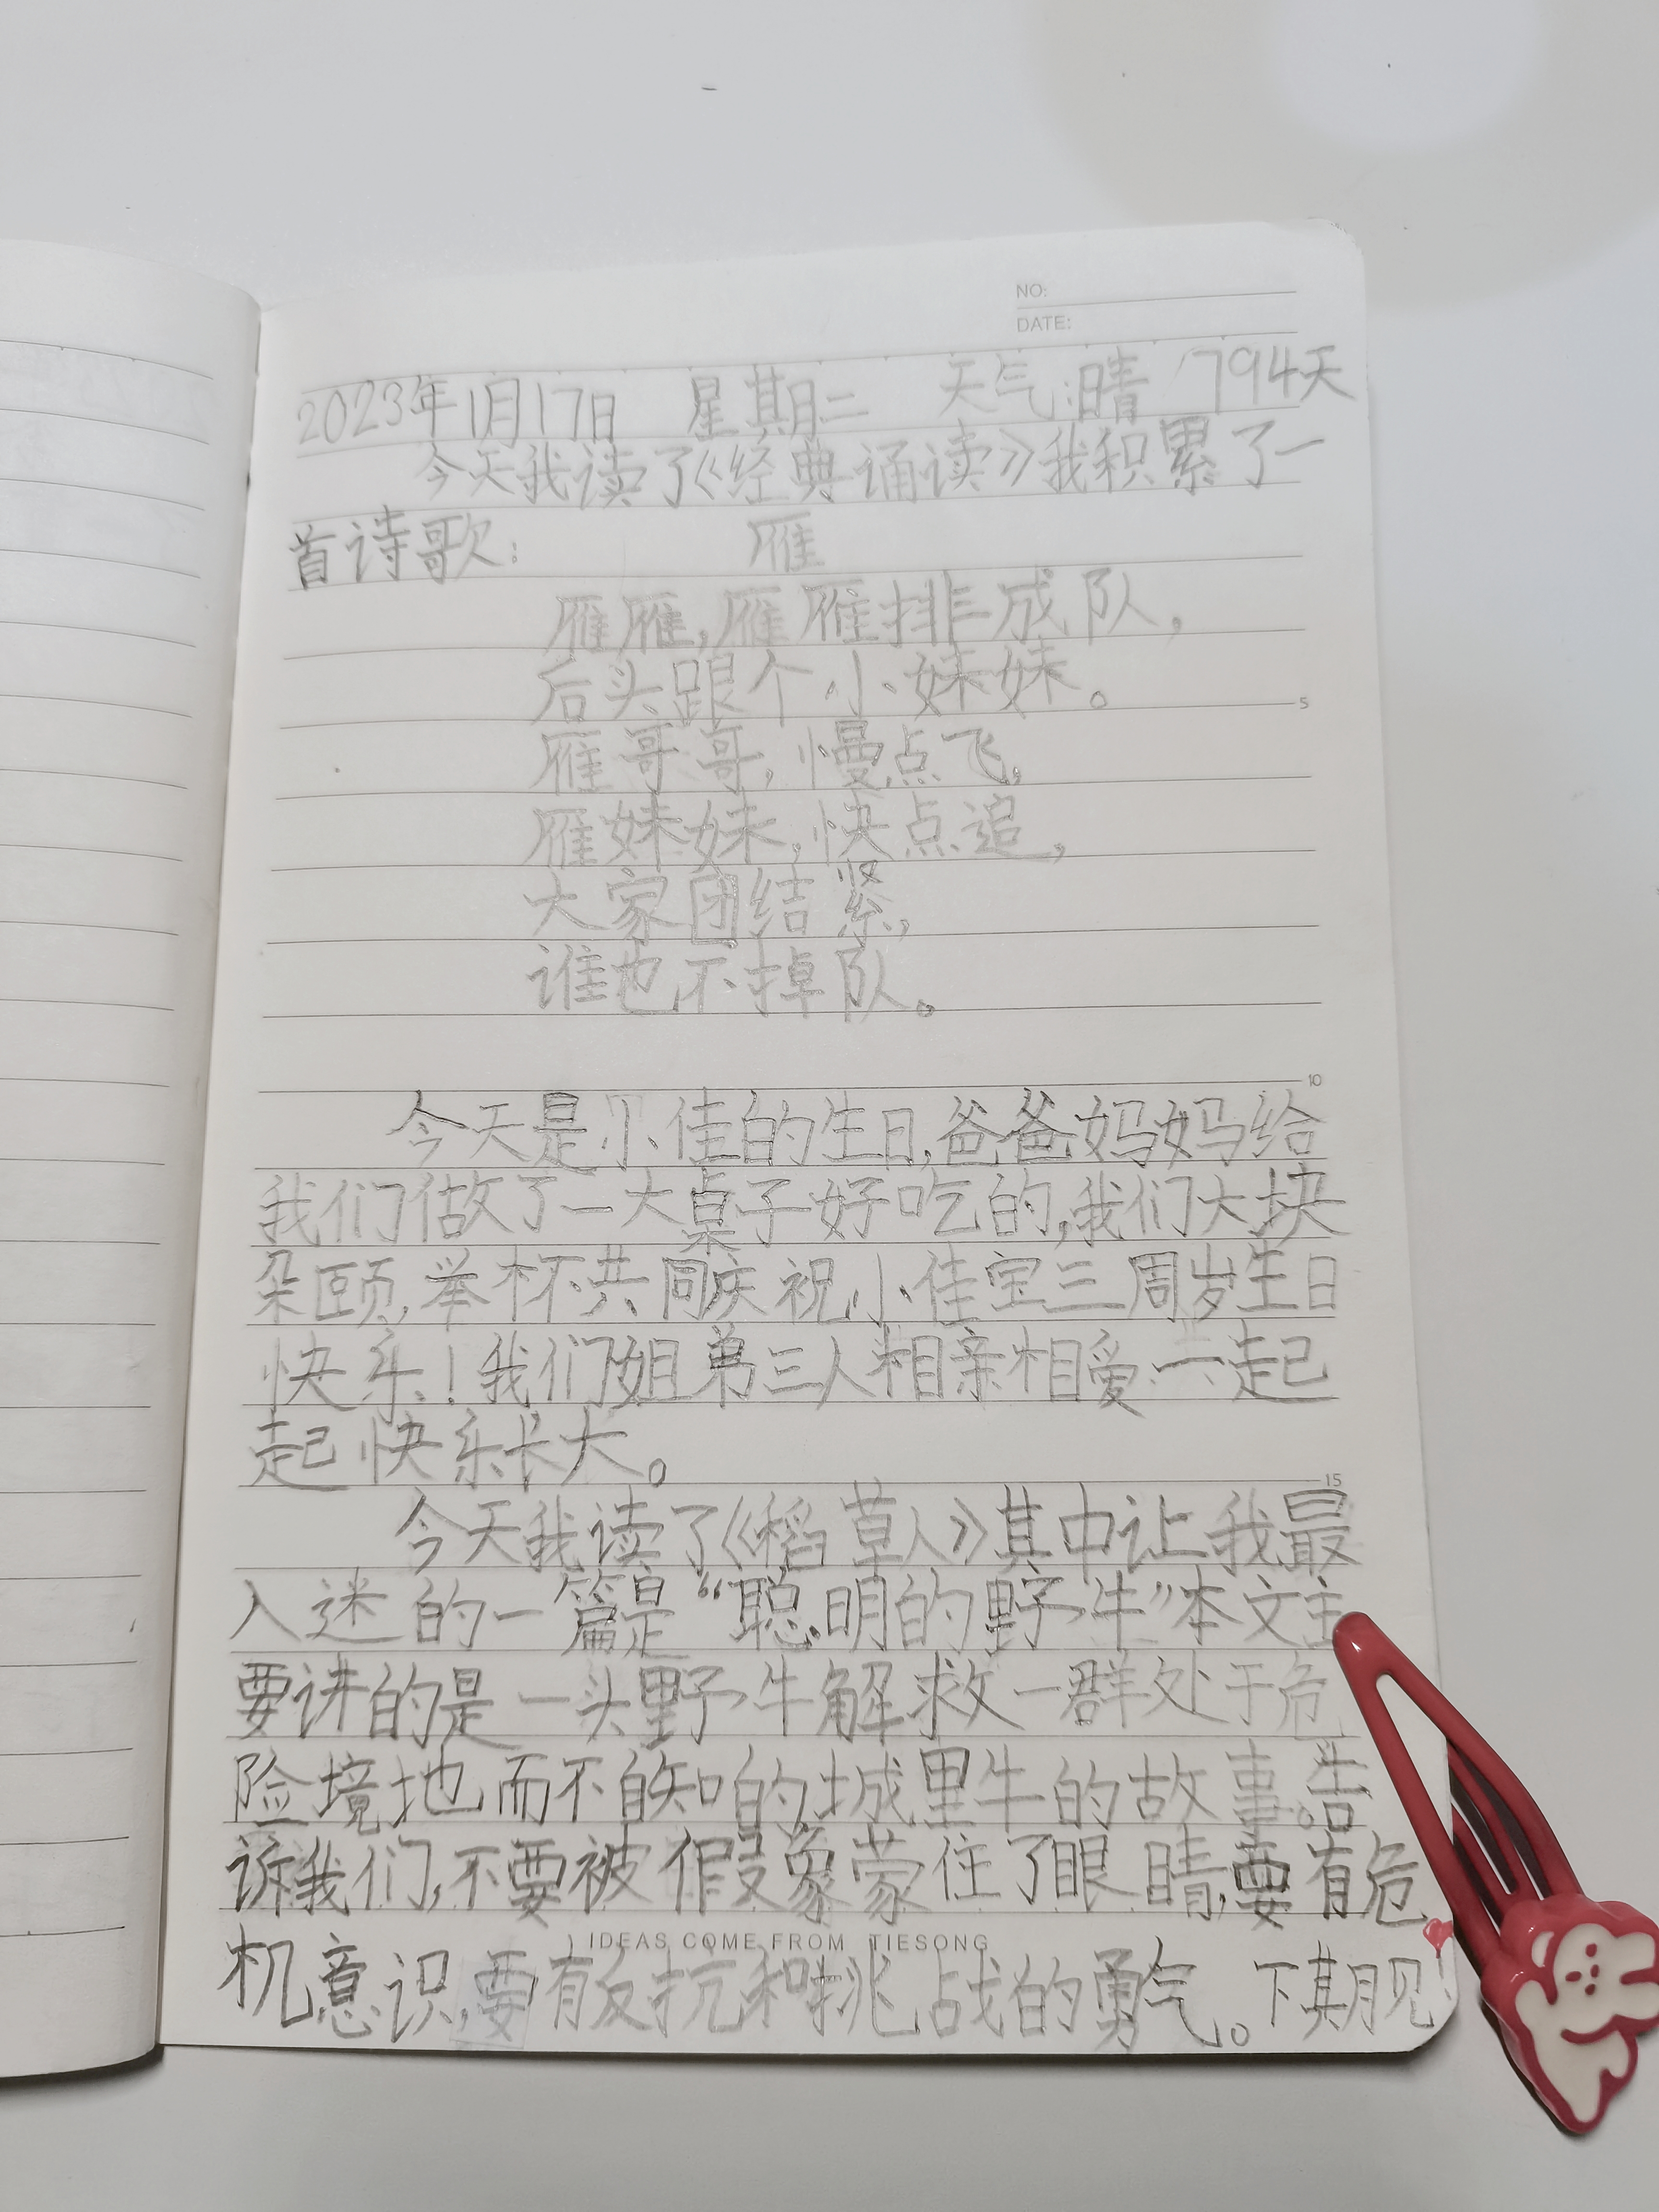 NO:
DATE:
2023年1月17日 星期二 天气:晴 794天
今天我读了《经典诵读》我积累了一
首诗歌: 雁
雁雁,雁雁排成队,
后头跟个小妹妹。
5
雁哥哥,慢点飞,
雁妹妹,快点追,
大家团结紧,
谁也不掉队。
10
今天是小佳的生日,爸爸妈妈给
我们做了一大桌子好吃的,我们大块
朵颐,举杯共同庆祝小佳宝三周岁生日
快乐!我们姐弟三人相亲相爱一起
起快乐长大。
15
今天我读了《稻草人》其中让我最
入迷的一篇是“聪明的野牛”本文主
要讲的是一头野牛解救一群处于危
险境地而不自知的城里牛的故事。告
诉我们,不要被假象蒙住了眼睛,要有危
机意识,要有反抗和挑战的勇气。下期见!
IDEAS COME FROM TIESONG